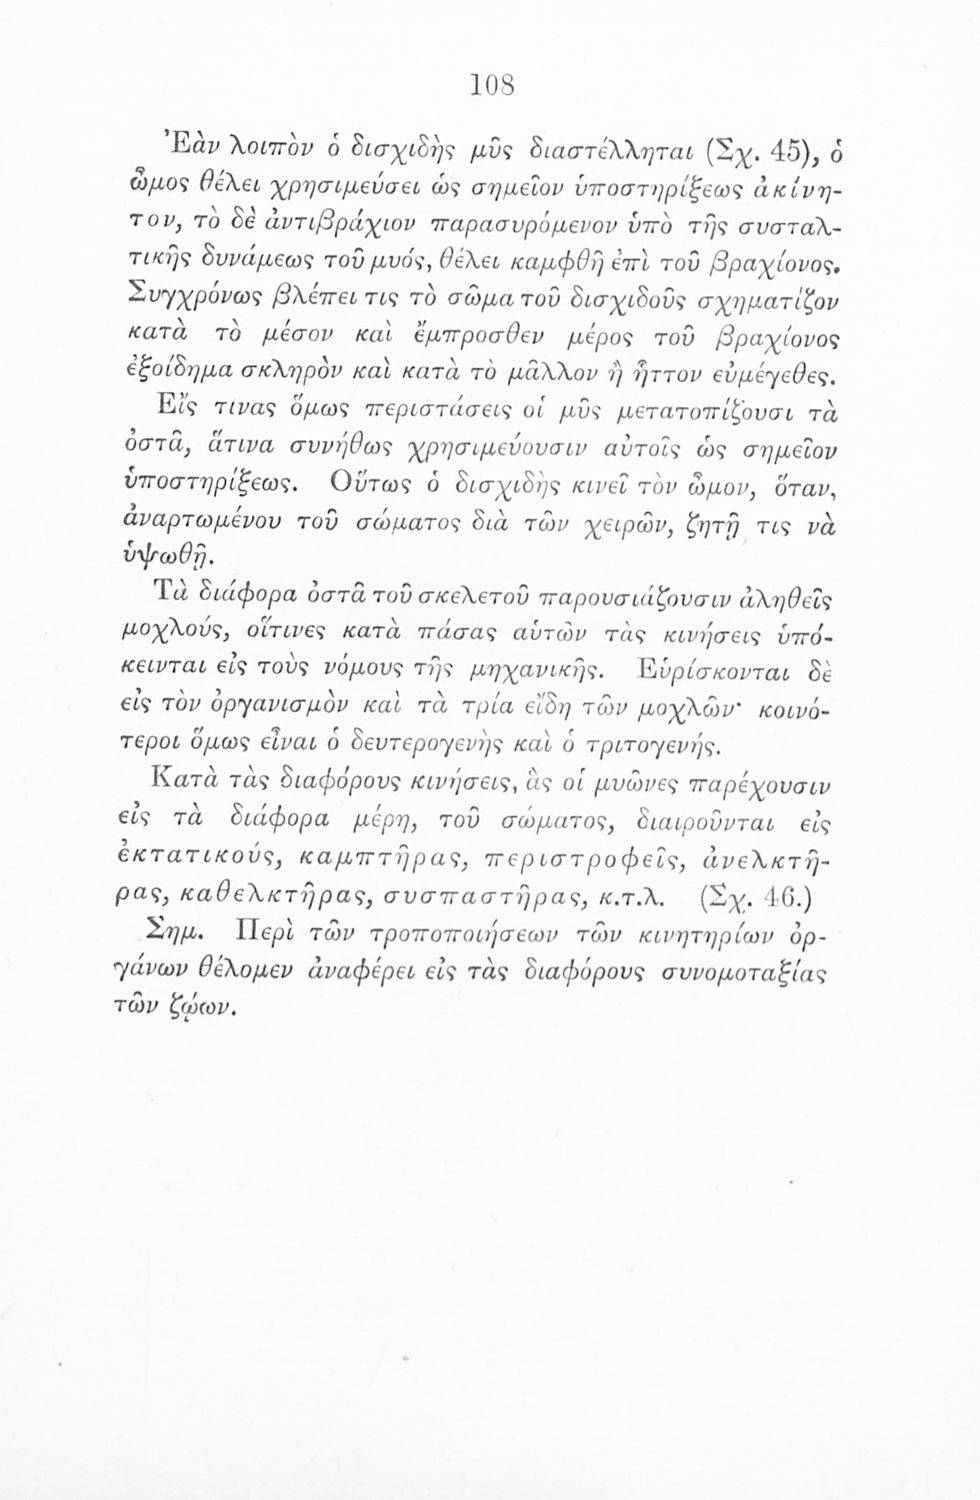 108
Ἐὰν λοιπὸν ὁ δισχιδὴς μῦς διαστέλληται (Σχ. 45), ὁ
ὦμος θέλει χρησιμεύσει ὡς σημεῖον ὑποστηρίξεως ἀκίνη-
τον, τὸ δὲ ἀντιβράχιον παρασυρόμενον ὑπὸ τῆς συσταλ-
τικῆς δυνάμεως τοῦ μυός, θέλει καμφθῆ ἐπὶ τοῦ βραχίονος.
Συγχρόνως βλέπει τις τὸ σῶμα τοῦ δισχιδοῦς σχηματίζον
κατὰ τὸ μέσον καὶ ἔμπροσθεν μέρος τοῦ βραχίονος
ἐξοίδημα σκληρὸν καὶ κατὰ τὸ μᾶλλον ἢ ἧττον εὐμέγεθες.
Εἴς τινας ὅμως περιστάσεις οἱ μῦς μετατοπίζουσι τὰ
ὀστᾶ, ἅτινα συνήθως χρησιμεύουσιν αὐτοῖς ὡς σημεῖον
ὑποστηρίξεως. Οὕτως ὁ δισχιδὴς κινεῖ τὸν ὦμον, ὅταν,
ἀναρτωμένου τοῦ σώματος διὰ τῶν χειρῶν, ζητῇ τις νὰ
ὑψωθῇ.
Τὰ διάφορα ὀστᾶ τοῦ σκελετοῦ παρουσιάζουσιν ἀληθεῖς
μοχλούς, οἵτινες κατὰ πάσας αὑτῶν τὰς κινήσεις ὑπό-
κεινται εἰς τοὺς νόμους τῆς μηχανικῆς. Εὑρίσκονται δὲ
εἰς τὸν ὀργανισμὸν καὶ τὰ τρία εἴδη τῶν μοχλῶν· κοινό-
τεροι ὅμως εἶναι ὁ δευτερογενὴς καὶ ὁ τριτογενής.
Κατὰ τὰς διαφόρους κινήσεις, ἃς οἱ μυῶνες παρέχουσιν
εἰς τὰ διάφορα μέρη, τοῦ σώματος, διαιροῦνται εἰς
ἐκτατικούς, καμπτῆρας, περιστροφεῖς, ἀνελκτῆ-
ρας, καθελκτῆρας, συσπαστῆρας, κ.τ.λ. (Σχ. 46.)
Σημ. Περὶ τῶν τροποποιήσεων τῶν κινητηρίων ὀρ-
γάνων θέλομεν ἀναφέρει εἰς τὰς διαφόρους συνομοταξίας
τῶν ζῴων.